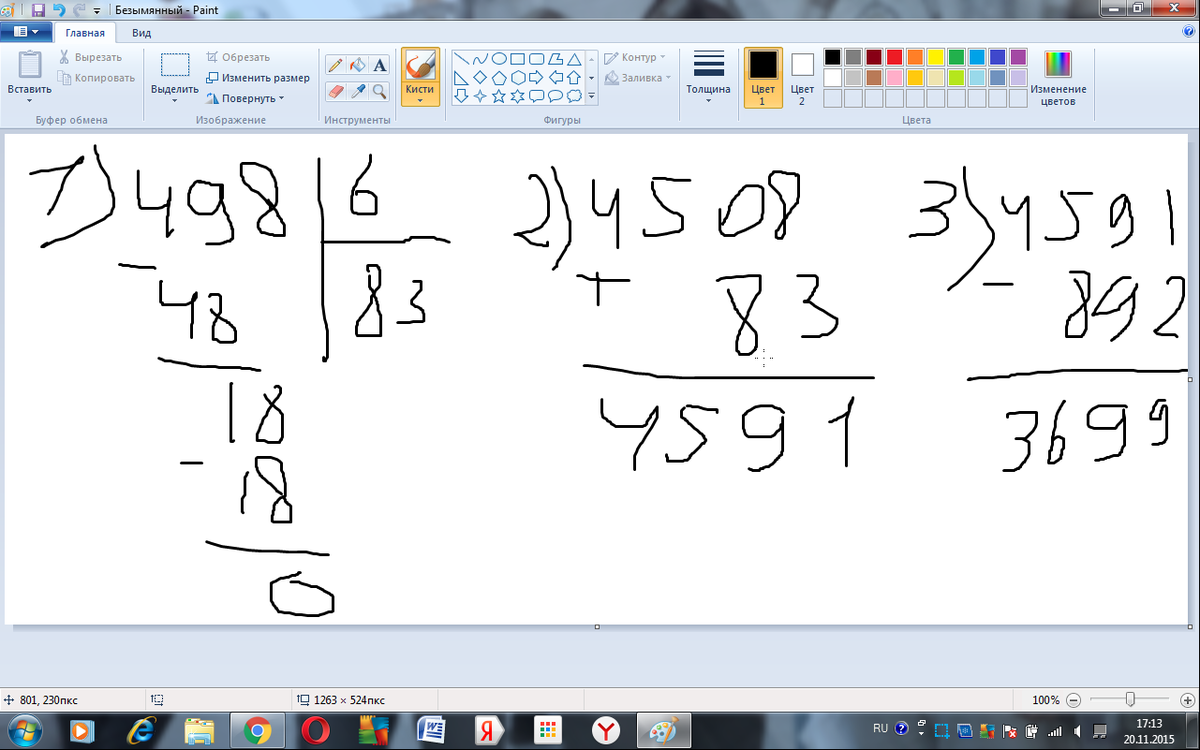 Безымянный - Paint
Главная Вид
Вырезать
Копировать
Вставить
Буфер обмена
Выделить
Обрезать
Изменить размер
Повернуть
Изображение
A
Инструменты
Кисти
Контур
Заливка
Фигуры
Толщина
Цвет 1
Цвет 2
Изменение цветов
Цвета
1) 498 6
- 48 83
18
- 18
0
2) 4508
+ 83
4591
3) 4591
- 892
3699
801, 230пкс 1263 × 524пкс 100%
RU 17:13
20.11.2015